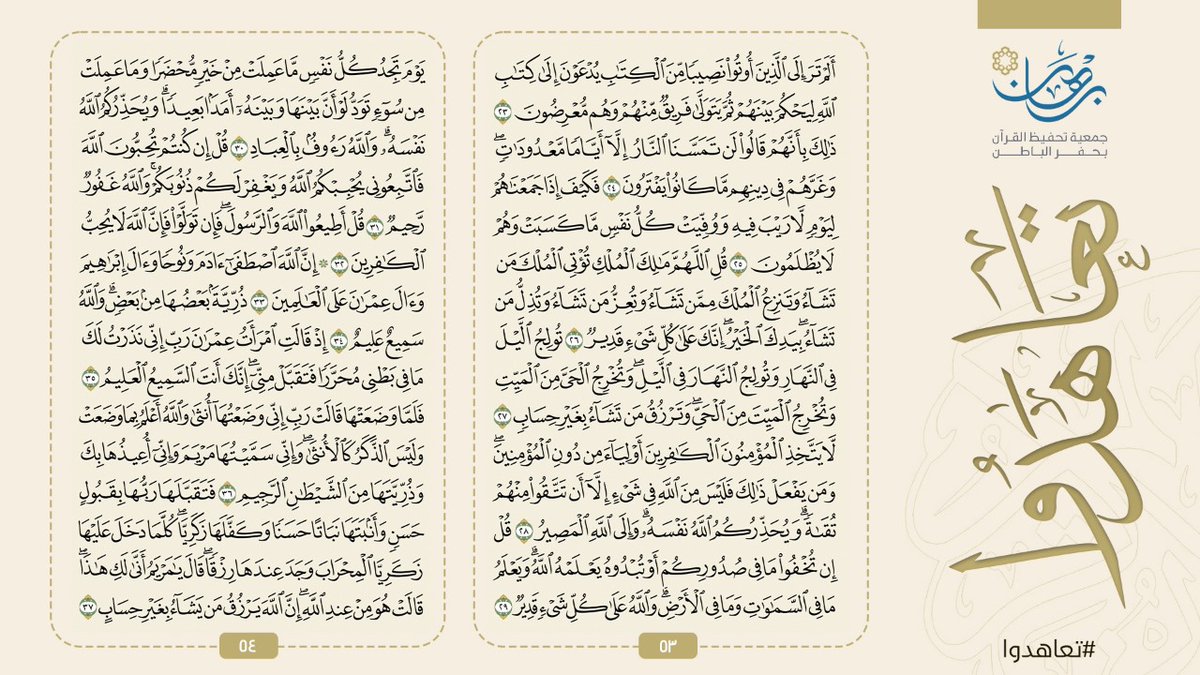 برهان
جمعية تحفيظ القرآن
بحفر الباطن
تعاهدوا
#تعاهدوا
أَلَمْ تَرَ إِلَى ٱلَّذِينَ أُوتُوا۟ نَصِيبًا مِّنَ ٱلْكِتَٰبِ يُدْعَوْنَ إِلَىٰ كِتَٰبِ
ٱللَّهِ لِيَحْكُمَ بَيْنَهُمْ ثُمَّ يَتَوَلَّىٰ فَرِيقٌ مِّنْهُمْ وَهُم مُّعْرِضُونَ ٢٣
ذَٰلِكَ بِأَنَّهُمْ قَالُوا۟ لَن تَمَسَّنَا ٱلنَّارُ إِلَّآ أَيَّامًا مَّعْدُودَٰتٍ ۖ
وَغَرَّهُمْ فِى دِينِهِم مَّا كَانُوا۟ يَفْتَرُونَ ٢٤ فَكَيْفَ إِذَا جَمَعْنَٰهُمْ
لِيَوْمٍ لَّا رَيْبَ فِيهِ وَوُفِّيَتْ كُلُّ نَفْسٍ مَّا كَسَبَتْ وَهُمْ
لَا يُظْلَمُونَ ٢٥ قُلِ ٱللَّهُمَّ مَٰلِكَ ٱلْمُلْكِ تُؤْتِى ٱلْمُلْكَ مَن
تَشَآءُ وَتَنزِعُ ٱلْمُلْكَ مِمَّن تَشَآءُ وَتُعِزُّ مَن تَشَآءُ وَتُذِلُّ مَن
تَشَآءُ ۖ بِيَدِكَ ٱلْخَيْرُ ۖ إِنَّكَ عَلَىٰ كُلِّ شَىْءٍ قَدِيرٌ ٢٦ تُولِجُ ٱلَّيْلَ
فِى ٱلنَّهَارِ وَتُولِجُ ٱلنَّهَارَ فِى ٱلَّيْلِ ۖ وَتُخْرِجُ ٱلْحَىَّ مِنَ ٱلْمَيِّتِ
وَتُخْرِجُ ٱلْمَيِّتَ مِنَ ٱلْحَىِّ ۖ وَتَرْزُقُ مَن تَشَآءُ بِغَيْرِ حِسَابٍ ٢٧
لَّا يَتَّخِذِ ٱلْمُؤْمِنُونَ ٱلْكَٰفِرِينَ أَوْلِيَآءَ مِن دُونِ ٱلْمُؤْمِنِينَ ۖ
وَمَن يَفْعَلْ ذَٰلِكَ فَلَيْسَ مِنَ ٱللَّهِ فِى شَىْءٍ إِلَّآ أَن تَتَّقُوا۟ مِنْهُمْ
تُقَىٰةً ۗ وَيُحَذِّرُكُمُ ٱللَّهُ نَفْسَهُۥ ۗ وَإِلَى ٱللَّهِ ٱلْمَصِيرُ ٢٨ قُلْ
إِن تُخْفُوا۟ مَا فِى صُدُورِكُمْ أَوْ تُبْدُوهُ يَعْلَمْهُ ٱللَّهُ ۗ وَيَعْلَمُ
مَا فِى ٱلسَّمَٰوَٰتِ وَمَا فِى ٱلْأَرْضِ ۗ وَٱللَّهُ عَلَىٰ كُلِّ شَىْءٍ قَدِيرٌ ٢٩
٥٣
يَوْمَ تَجِدُ كُلُّ نَفْسٍ مَّا عَمِلَتْ مِنْ خَيْرٍ مُّحْضَرًا وَمَا عَمِلَتْ
مِن سُوٓءٍ تَوَدُّ لَوْ أَنَّ بَيْنَهَا وَبَيْنَهُۥٓ أَمَدًۢا بَعِيدًا ۗ وَيُحَذِّرُكُمُ ٱللَّهُ
نَفْسَهُۥ ۗ وَٱللَّهُ رَءُوفٌۢ بِٱلْعِبَادِ ٣٠ قُلْ إِن كُنتُمْ تُحِبُّونَ ٱللَّهَ
فَٱتَّبِعُونِى يُحْبِبْكُمُ ٱللَّهُ وَيَغْفِرْ لَكُمْ ذُنُوبَكُمْ ۗ وَٱللَّهُ غَفُورٌ
رَّحِيمٌ ٣١ قُلْ أَطِيعُوا۟ ٱللَّهَ وَٱلرَّسُولَ ۖ فَإِن تَوَلَّوْا۟ فَإِنَّ ٱللَّهَ لَا يُحِبُّ
ٱلْكَٰفِرِينَ ٣٢ ۞ إِنَّ ٱللَّهَ ٱصْطَفَىٰٓ ءَادَمَ وَنُوحًا وَءَالَ إِبْرَٰهِيمَ
وَءَالَ عِمْرَٰنَ عَلَى ٱلْعَٰلَمِينَ ٣٣ ذُرِّيَّةًۢ بَعْضُهَا مِنۢ بَعْضٍ ۗ وَٱللَّهُ
سَمِيعٌ عَلِيمٌ ٣٤ إِذْ قَالَتِ ٱمْرَأَتُ عِمْرَٰنَ رَبِّ إِنِّى نَذَرْتُ لَكَ
مَا فِى بَطْنِى مُحَرَّرًا فَتَقَبَّلْ مِنِّىٓ ۖ إِنَّكَ أَنتَ ٱلسَّمِيعُ ٱلْعَلِيمُ ٣٥
فَلَمَّا وَضَعَتْهَا قَالَتْ رَبِّ إِنِّى وَضَعْتُهَآ أُنثَىٰ وَٱللَّهُ أَعْلَمُ بِمَا وَضَعَتْ
وَلَيْسَ ٱلذَّكَرُ كَٱلْأُنثَىٰ ۖ وَإِنِّى سَمَّيْتُهَا مَرْيَمَ وَإِنِّىٓ أُعِيذُهَا بِكَ
وَذُرِّيَّتَهَا مِنَ ٱلشَّيْطَٰنِ ٱلرَّجِيمِ ٣٦ فَتَقَبَّلَهَا رَبُّهَا بِقَبُولٍ
حَسَنٍ وَأَنۢبَتَهَا نَبَاتًا حَسَنًا وَكَفَّلَهَا زَكَرِيَّا ۖ كُلَّمَا دَخَلَ عَلَيْهَا
زَكَرِيَّا ٱلْمِحْرَابَ وَجَدَ عِندَهَا رِزْقًا ۖ قَالَ يَٰمَرْيَمُ أَنَّىٰ لَكِ هَٰذَا ۖ
قَالَتْ هُوَ مِنْ عِندِ ٱللَّهِ ۖ إِنَّ ٱللَّهَ يَرْزُقُ مَن يَشَآءُ بِغَيْرِ حِسَابٍ ٣٧
٥٤